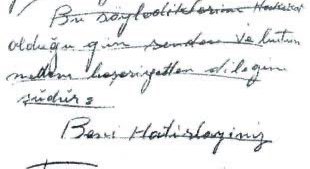 Bu söylediklerim Hakkın
olduğu gün senden ve bütün
beşeriyetten dileğim
şudur:
Beni Hatırlayınız